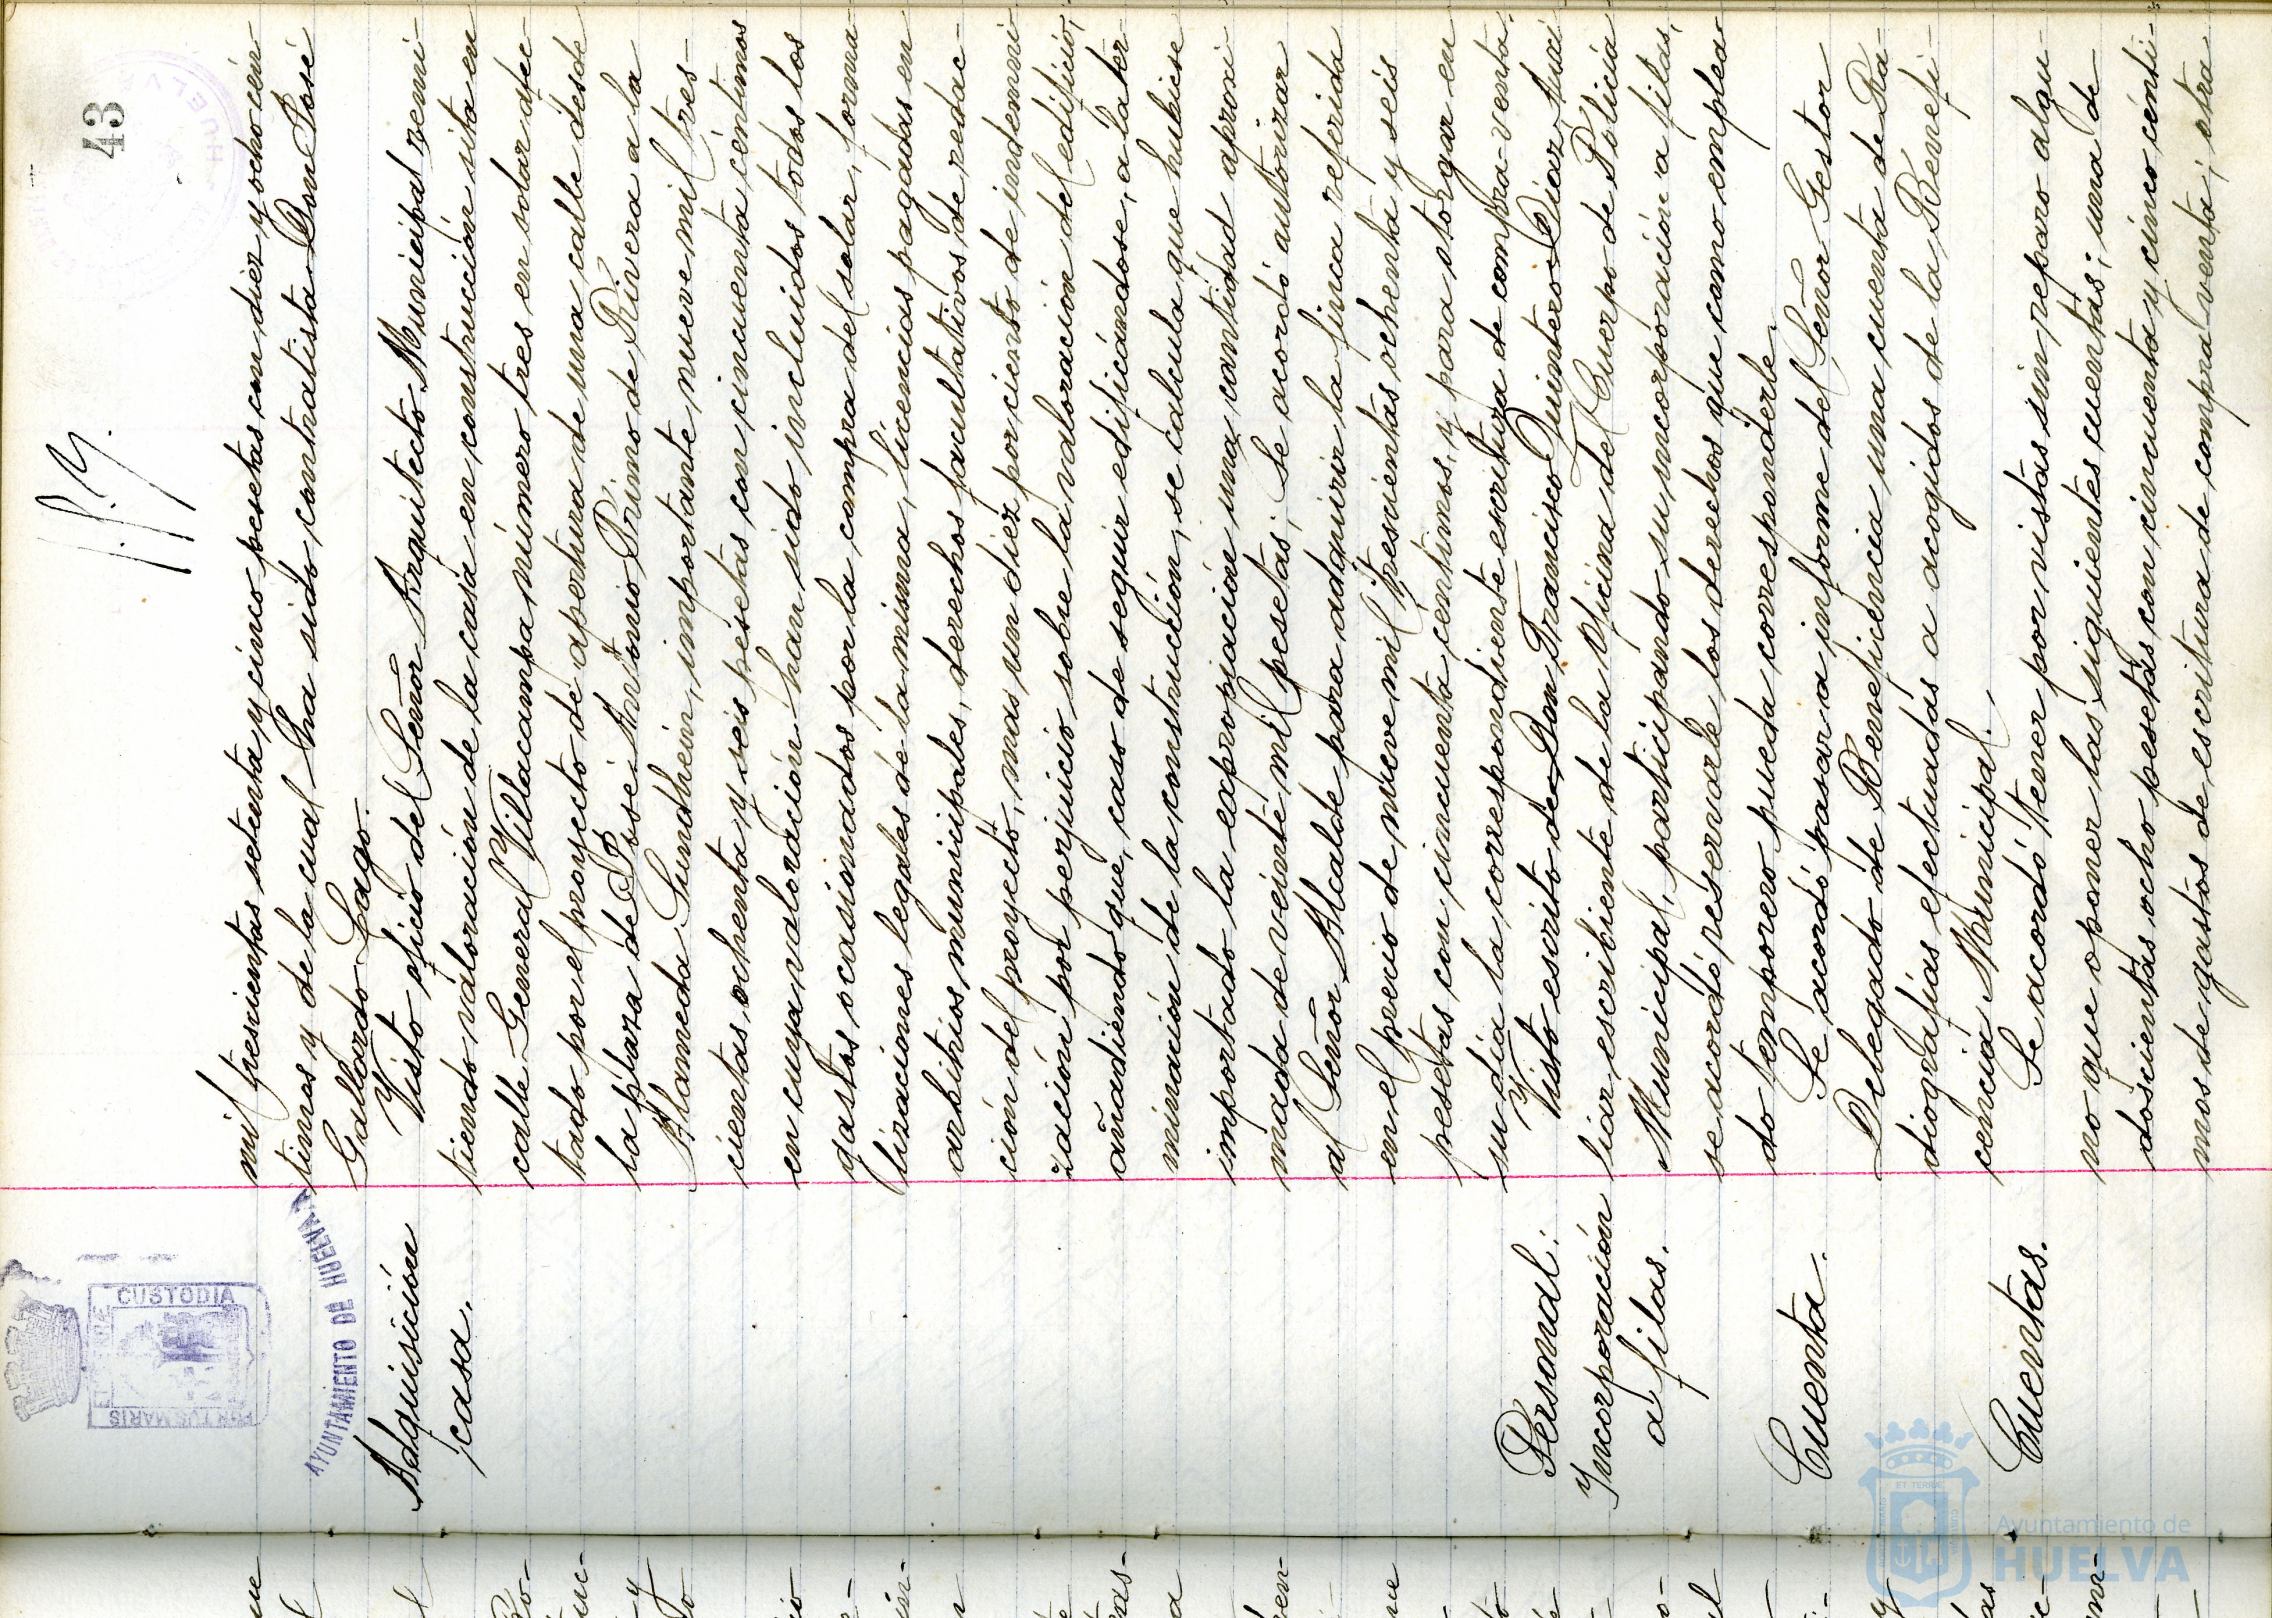 43
mil trescientas setenta y cinco pesetas con diez y ocho cén-
timos y de la cual ha sido contratista Don José
Gallardo Lago.
Adquisición
casa.
Visto oficio del Señor Arquitecto Municipal remi-
tiendo valoración de la casa en construcción sita en
calle General Villacampa número tres en solar afec-
tado por el proyecto de apertura de una calle desde
la plaza de José Antonio Primo de Rivera a la
Alameda Sundheim, importante nueve mil tres-
cientas ochenta y seis pesetas con cincuenta céntimos
en cuya valoración han sido incluidos todos los
gastos ocasionados por la compra del solar, forma-
lizaciones legales de la misma, licencias pagadas en
arbitrios municipales, derechos facultativos de redac-
ción del proyecto, mas un diez por ciento de indemni-
zación por perjuicio sobre la valoración del edificio,
añadiendo que, caso de seguir edificándose, a la ter-
minación de la construcción, se calcula que hubiese
importado la expropiación una cantidad aproxi-
mada de veinte mil pesetas; Se acordó autorizar
al Señor Alcalde para adquirir la finca referida
en el precio de nueve mil trescientas ochenta y seis
pesetas con cincuenta céntimos, y para otorgar en
su día la correspondiente escritura de compra-venta.
Personal:
Yncorporación
a filas.
Visto escrito de Don Francisco Quintero Díaz, Auxi-
liar escribiente de la Oficina del Cuerpo de Policía
Municipal, participando su incorporación a filas,
se acordó reservarle los derechos que como emplea-
do temporero pueda corresponderle.
Cuenta.
Se acordó pasar a informe del Señor Gestor
Delegado de Beneficencia una cuenta de Ra-
diografías efectuadas a acogidos de la Benefi-
cencia Municipal.
Cuentas.
Se acordó tener por vistas sin reparo algu-
no que oponer las siguientes cuentas; una de
doscientas ocho pesetas con cincuenta y cinco cénti-
mos de gastos de escritura de compra venta; otra
AYUNTAMIENTO DE HUELVA
PORTUS MARIS
CUSTODIA
HUELVA
Ayuntamiento de
HUELVA